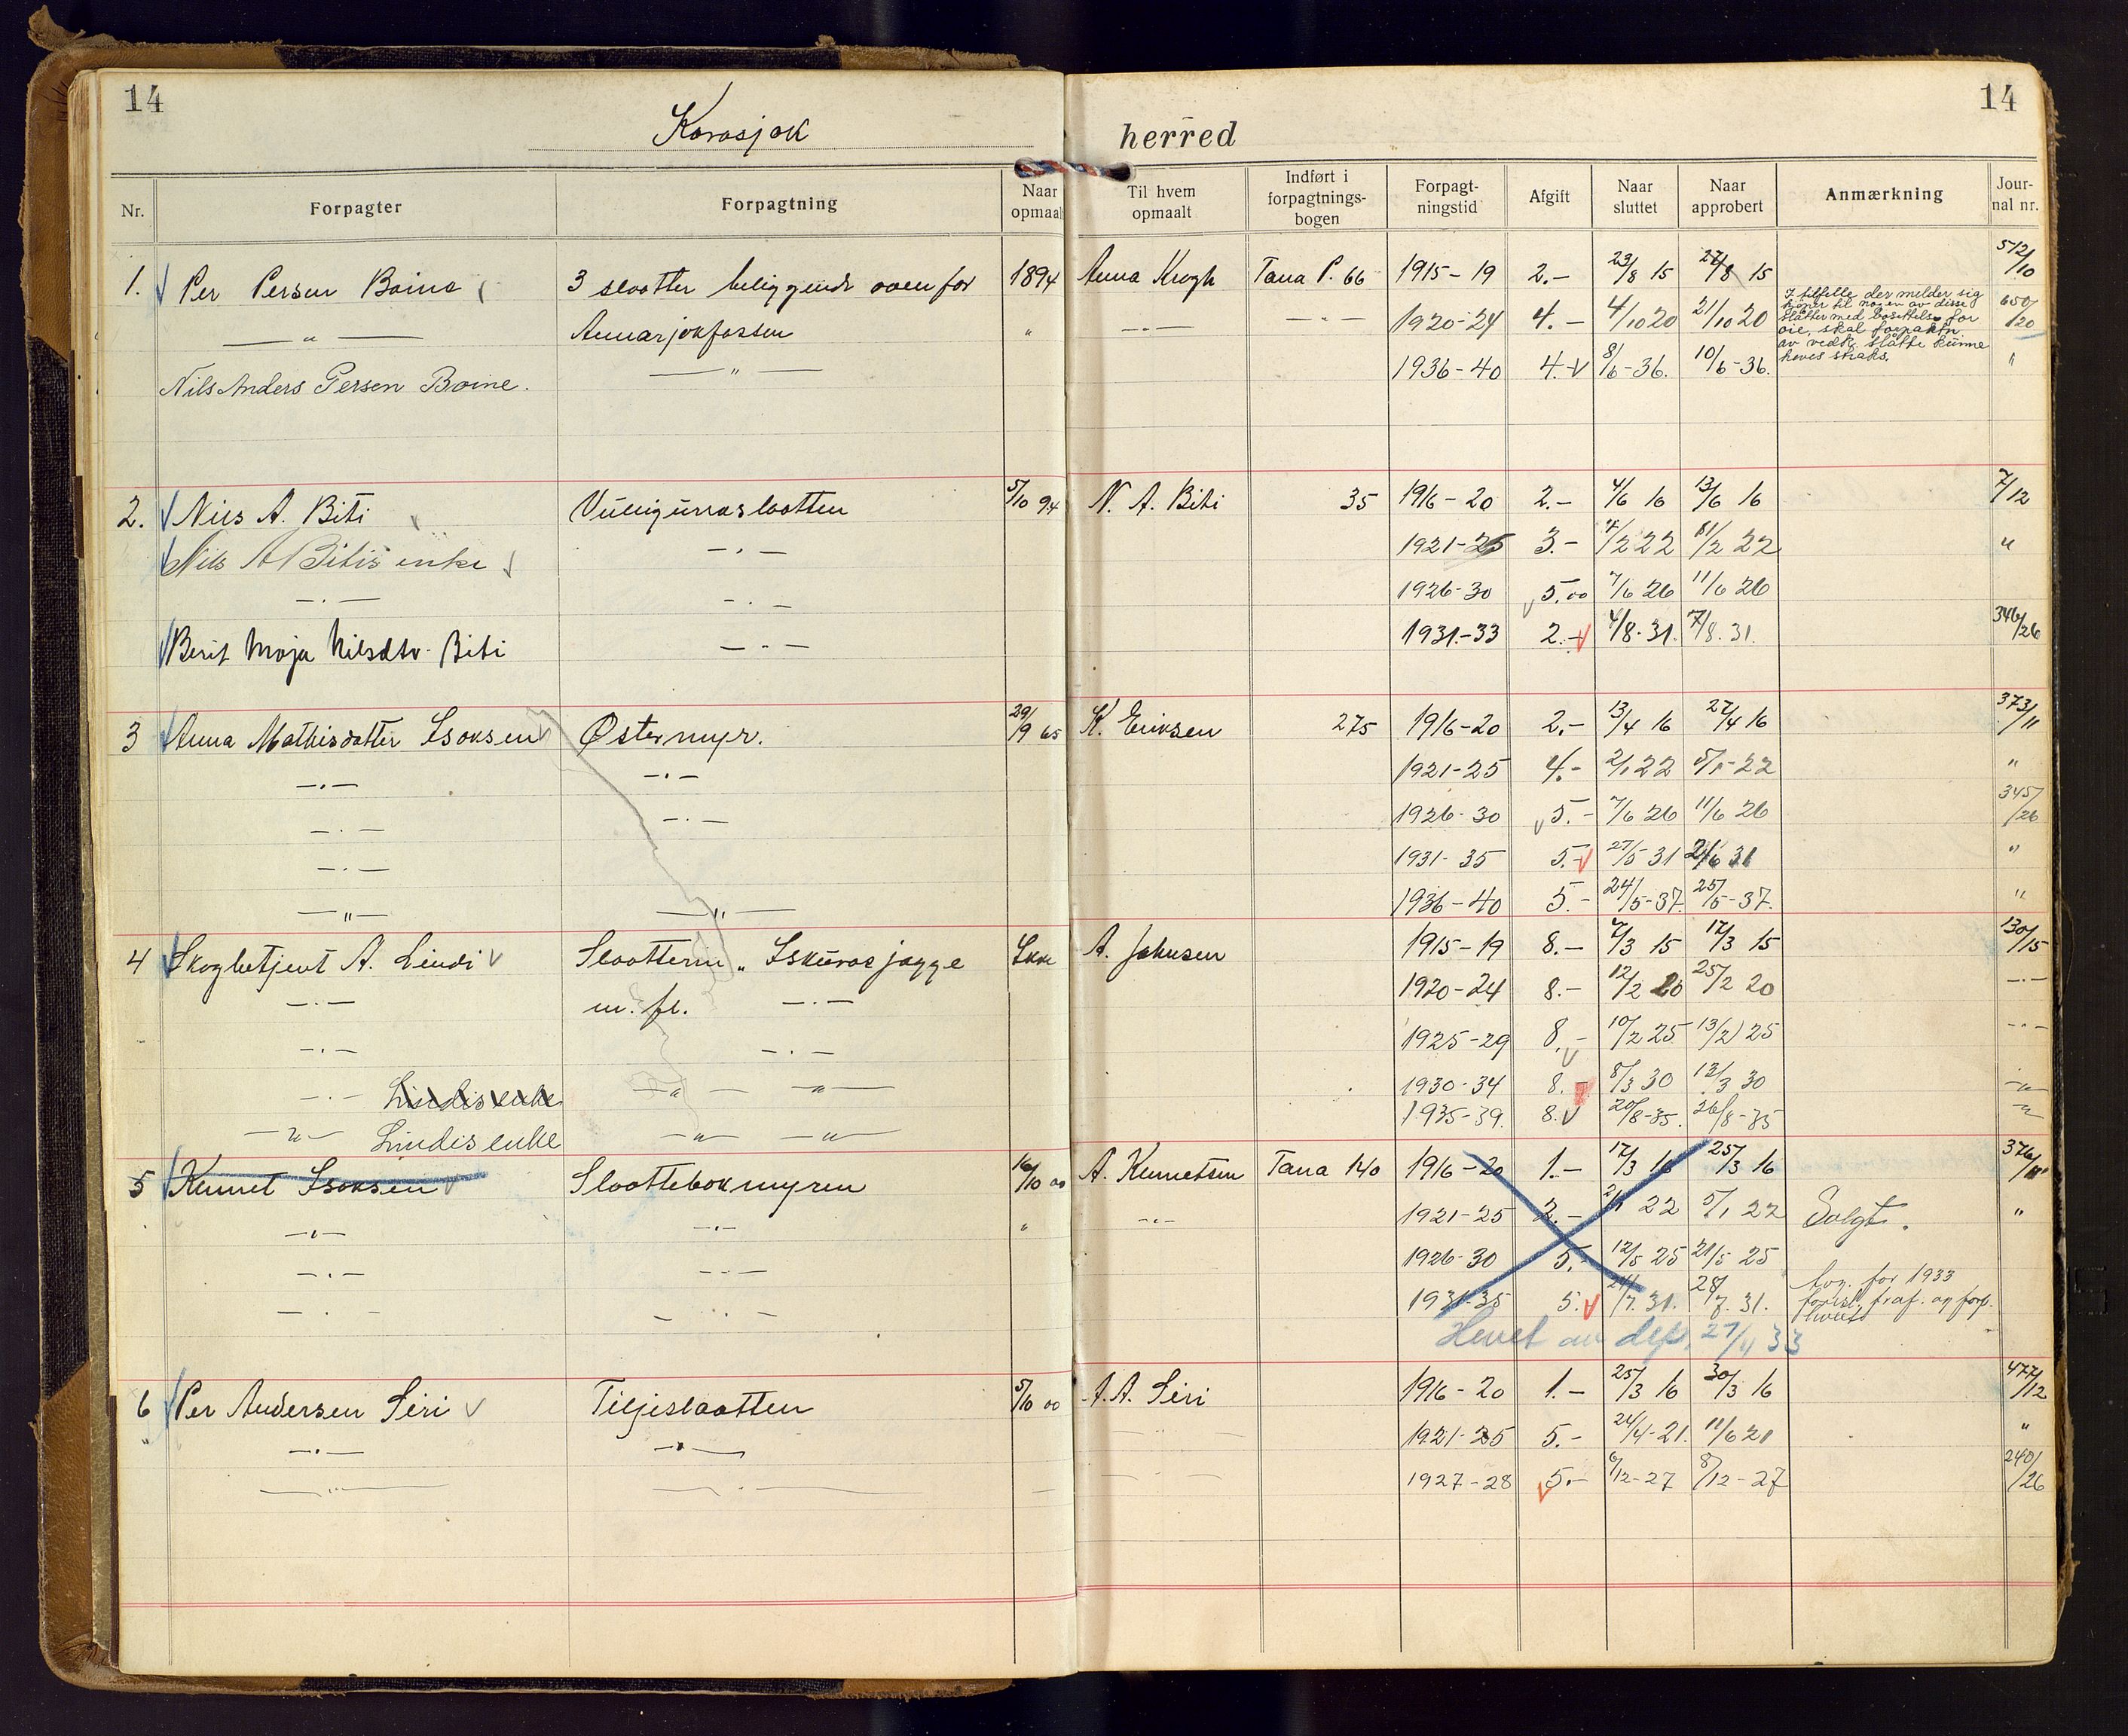 14 Karasjok herred 14
Nr. Forpagter Forpagtning Naar opmaalt Til hvem opmaalt Indført i forpagtnings-bogen Forpagt-ningstid Afgift Naar sluttet Naar approbert Anmærkning Jour-nal nr.
1. Per Persen Boine 3 slaatter beliggende ovenfor 1894 Anna Krogh Tana P. 66 1915-19 2.- 23/8 15 27/8 15 512/10
—"— Annarjokfossen " —"— —"— 1920-24 4.- 4/10 20 21/10 20 I tilfelle der melder sig 650/20
kjøper til nogen av disse
slåtter med bosettelse for
øie, skal forpaktn.
av vedk. slåtte kunne
heves straks.
Nils Anders Persen Boine. —"— 1936-40 4.- 8/6-36. 10/6-36. "
2. Nils A. Biti 5/10 94 N. A. Biti 35 1916-20 2.- 4/6 16 13/6 16 7/12
Nils A Bitis enke —"— 1921-25 3.- 22 22 "
—"— —"— 1926-30 5.00 7/6 26 11/6 26
Berit Moja Nilsdtr. Biti —"— 1931-33 2.- 4/8.31. 7/8.31. 346/26
3 Anna Mathisdatter Isaksen Østermyr. 29/9 65 K. Eriksen 275 1916-20 2.- 13/4 16 27/4 16 373/11
—"— —"— 1921-25 4.- 2/1 22 5/1-22 "
—"— —"— 1926-30 5.- 7/6 26 11/6 26 345/26
—"— 1931-35 5.- 27/5 31 31 "
—"— —"— 1936-40 5.- 24/5-37. 25/5-37. "
4 Skogbetjent A. Lindi Slaatterne "Iskurasjagge Ikke A. Johnsen 1915-19 8.- 7/3 15 17/3 15 130/15
—"— m. fl. —"— 1920-24 8.- 12/2 20 25/2 20 —"—
—"— —"— 1925-29 8.- 10/2 25 13/2 25 —"—
—"— Lindis enke —"— —"— 1930-34 8.- 8/3 30 12/3 30 —"—
—"— Lindis enke —"— —"— 1935-39. 8. 20/8-35. 26/8-35 —"—
5 Kemet Isaksen Slaattebokmyren 16/10 00 A. Kemetsen Tana 140 1916-20 1.- 17/3 16 25/3 16 376/11
—"— —"— " —"— 1921-25 2.- 22 5/1 22 Solgt. "
—"— —"— 1926-30 5.- 12/5 25 21/5 25
—"— —"— 1931-35 5. 24/7. 31. 28/7. 31. for 1933
Hevet av dep. 27/11 33
6 Per Andersen Siri Tiljeslaatten 5/10 00 A. A. Siri 1916-20 1.- 25/3 16 30/3 16 477/12
" —"— —"— —"— 1921-25 5.- 24/4-21. 11/6 21 "
—"— —"— — —"— 1927-28 5.- 6/12-27 8/12-27 240/26